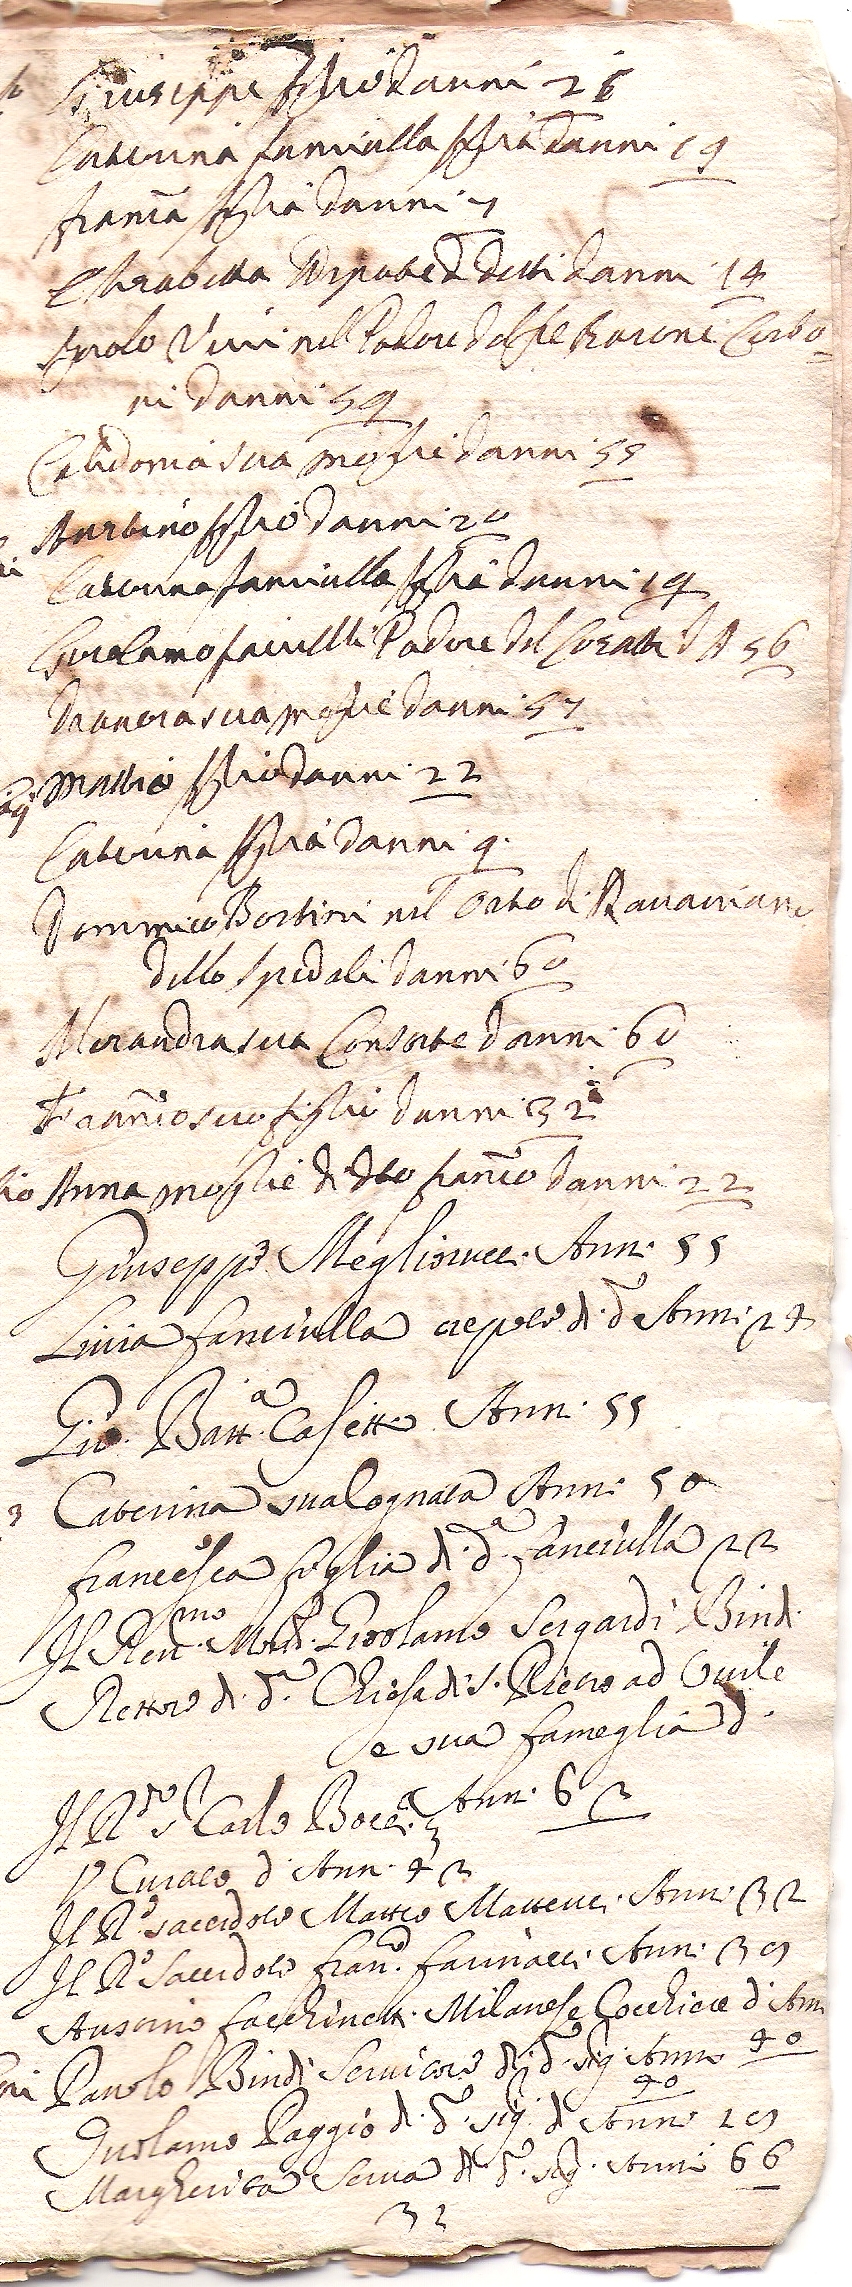 Giuseppe figlio d'anni 26
Caterina fanciulla figlia d'anni 19
Franca figlia d'anni 7
Elisabetta Nepote di detti d'anni 14
Paolo Vini nel Podere del Sre Barone Cerbo-
ni d'anni 59
Calidonia sua moglie d'anni 55
figlio d'anni 20
Caterina fanciulla figlia d'anni 19
Girolamo Podere del d A 56
sua moglie d'anni 57
Mattio figlio d'anni 22
Caterina figlia d'anni 9
Domenico Bortini nel Orto di
dello Spedale d'anni 60
sua Consorte d'anni 60
Franco suo figlio d'anni 32
Anna moglie di dto Franco d'anni 22
Giuseppe Megliorucci Anni 55
Livia fanciulla di do Anni 24
Gio. Batta Casetti Anni 55
Caterina sua Cognata Anni 50
Francesca figlia di da fanciulla 22
Il Renmo Mr. Girolamo Sergardi Bindi
Rettore di da Chiesa di S. Pietro ad Ovile
e sua fameglia d.
Il Rdo Sr Carlo Bocci Anni 63
Curato d'Anni 43
Il Rdo sacerdote Matteo Matteucci Anni 32
Il Rdo Sacerdote Frano. Farinacci Anni 39
Facchinetti Milanese Cocchiere d'Anni
40
Pauolo Bindi Servitore di do sig. Anni
40
Girolamo Paggio di do sig. d'Anni 19
Margherita Serva di do sig. Anni 66
32